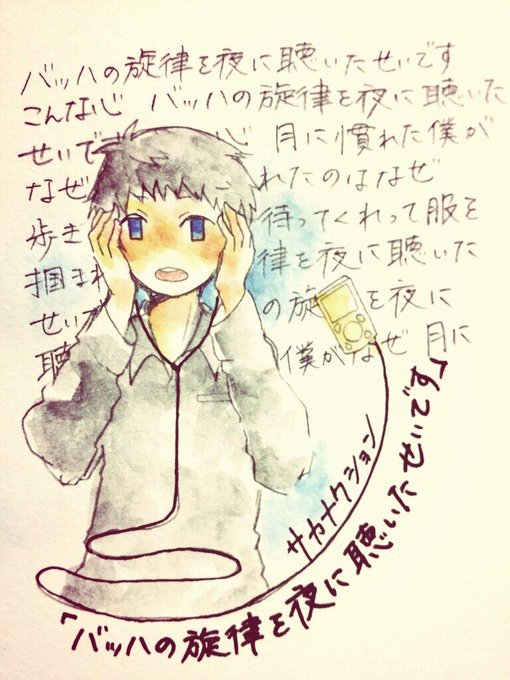 バッハの旋律を夜に聴いたせいです
こんな心 バッハの旋律を夜に聴いた
せいで 心 月に慣れた僕が
なぜ れたのはなぜ
歩き 待ってくれって服を
掴まれ 律を夜に聴いた
せいで の旋 を夜に
聴 僕がなぜ 月に
サカナクション
「バッハの旋律を夜に聴いたせいです」